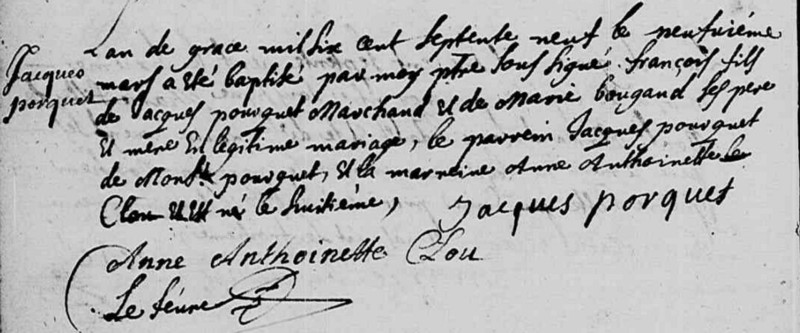 Jacques
porquet
Lan de grace mil six cent septente neuf le neufviéme
mars a eté baptisé par moy ptre sous signé françois fils
de Jacques pourquet Marchand et de Marie bougand ses pere
et mere en legitime mariage, le parrein Jacques pourquet
de pourquet, et la marreine Anne Anthoinette
Clou et est né le huitiéme,
Jacques porquet
Anne Anthoinette Clou
Le feure